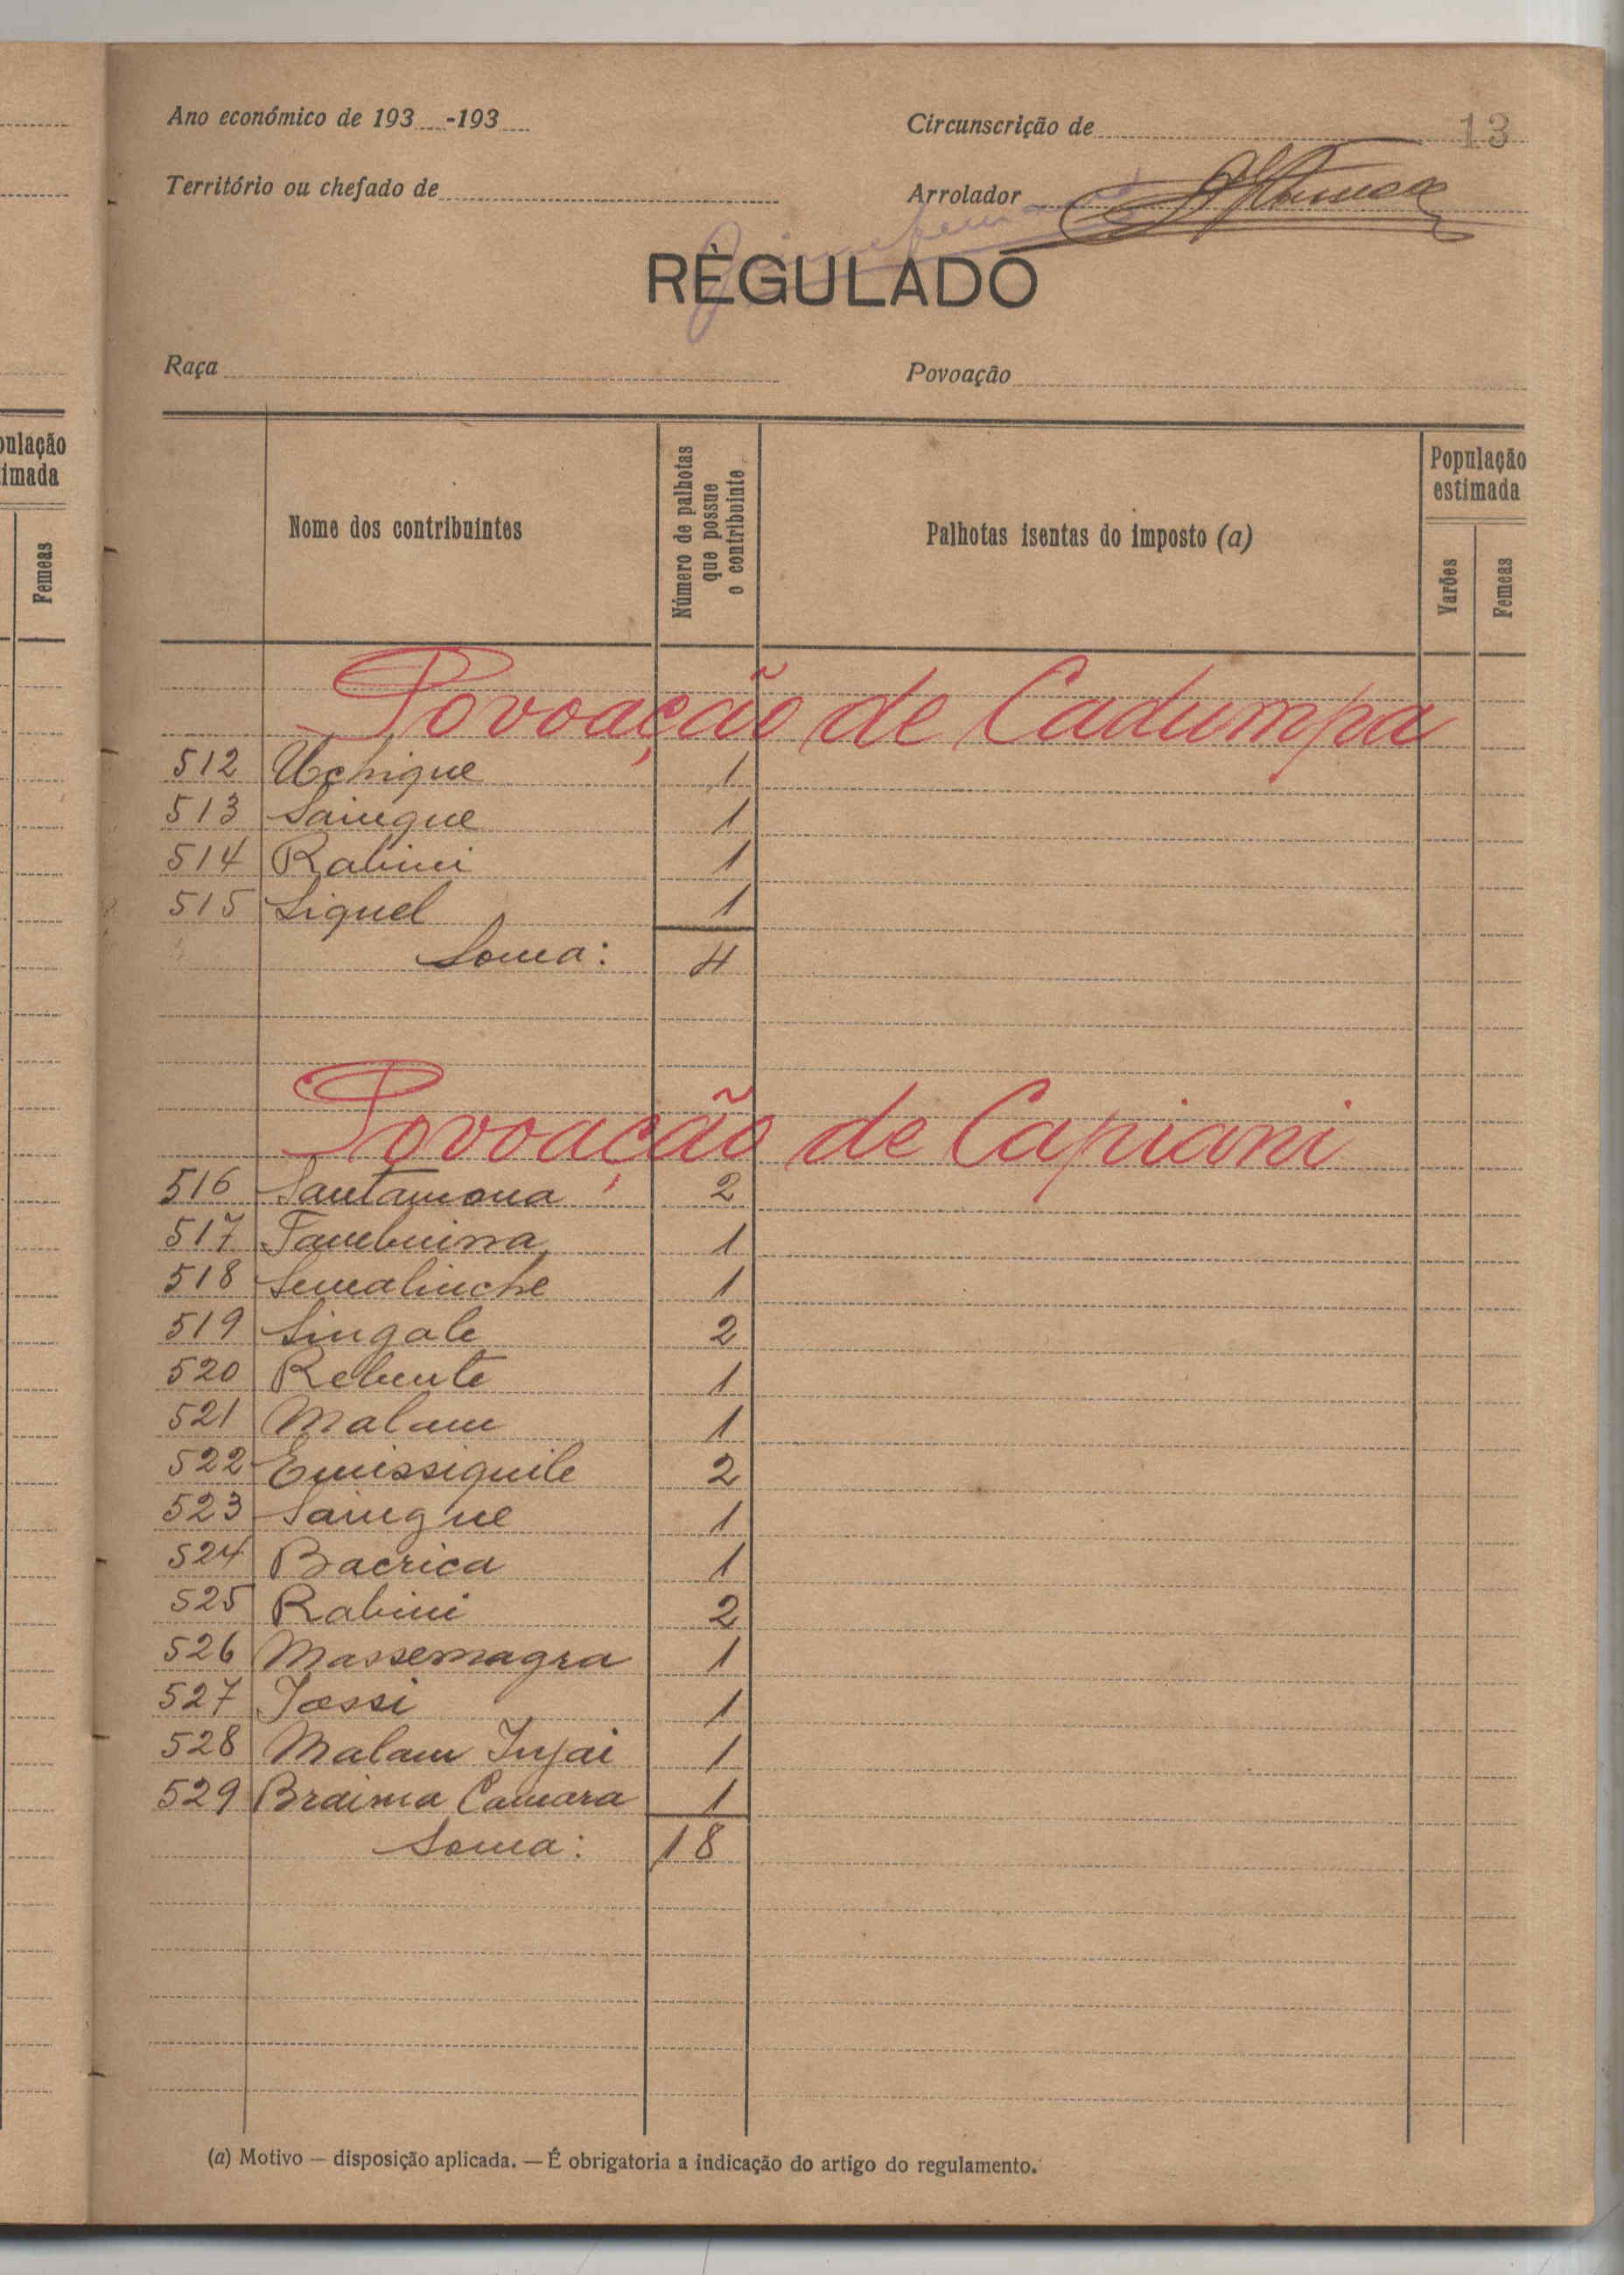 pulação
imada
Femeas
Ano económico de 193 -193
Circunscrição de
13
Território ou chefado de
Arrolador
RÈGULADO
Raça
Povoação
Nome dos contribuintes
Número de palhotas que possue o contribuinte
Palhotas isentas do imposto (a)
População estimada
Varões
Femeas
Povoação de Cadumpa
512 Uchique 1
513 Saingue 1
514 Rabini 1
515 Siquel 1
Soma: 4
Povoação de Capiani
516 Santamona 2
517 1
518 Semalinche 1
519 Singale 2
520 Rebente 1
521 Malam 1
522 Emissiquile 2
523 Saingue 1
524 Bacrica 1
525 Rabini 2
526 Massemagra 1
527 Jossi 1
528 Malam Injai 1
529 Braima Camara 1
Soma: 18
(a) Motivo — disposição aplicada. — É obrigatoria a indicação do artigo do regulamento.